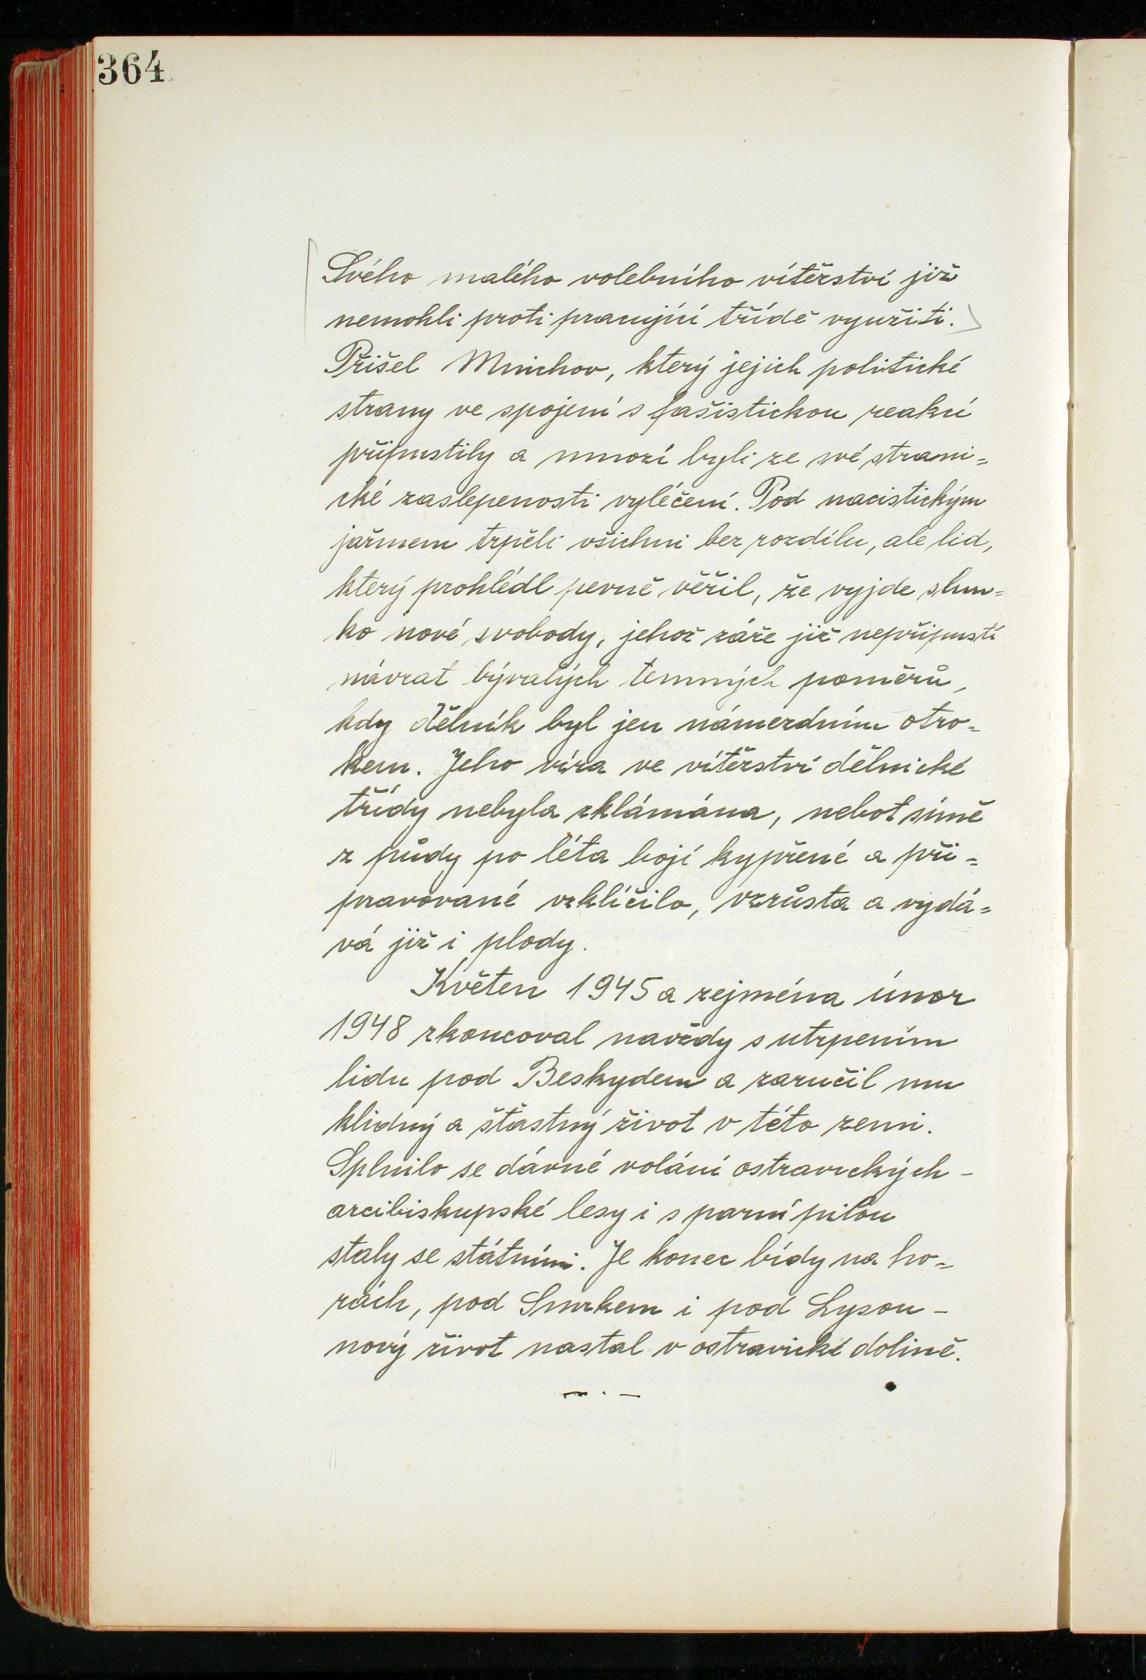 364
Svého malého volebního vítězství již
nemohli proti pracující třídě využiti.
Přišel Mnichov, který jejich politické
strany ve spojení s fašistickou reakcí
připustily a mnozí byli ze své strani=
cké zaslepenosti vyléčeni. Pod nacistickým
jařmem trpěli všichni bez rozdílu, ale lid,
který prohlédl pevně věřil, že vyjde slun=
ko nové svobody, jehož záře již nepřipustí
návrat bývalých temných poměrů,
kdy dělník byl jen námezdním otro=
kem. Jeho víra ve vítězství dělnické
třídy nebyla zklámána, neboť símě
z půdy po léta bojí kypřené a při=
pravované vzklíčilo, vzrůsta a vydá=
vá již i plody.
Květen 1945 a zejména únor
1948 zkoncoval navždy s utrpením
lidu pod Beskydem a zaručil mu
klidný a šťastný život v této zemi.
Splnilo se dávné volání ostravických -
arcibiskupské lesy i s parní pilou
staly se státními. Je konec bídy na ho=
rách, pod Smrkem i pod Lysou -
nový život nastal v ostravické dolině.